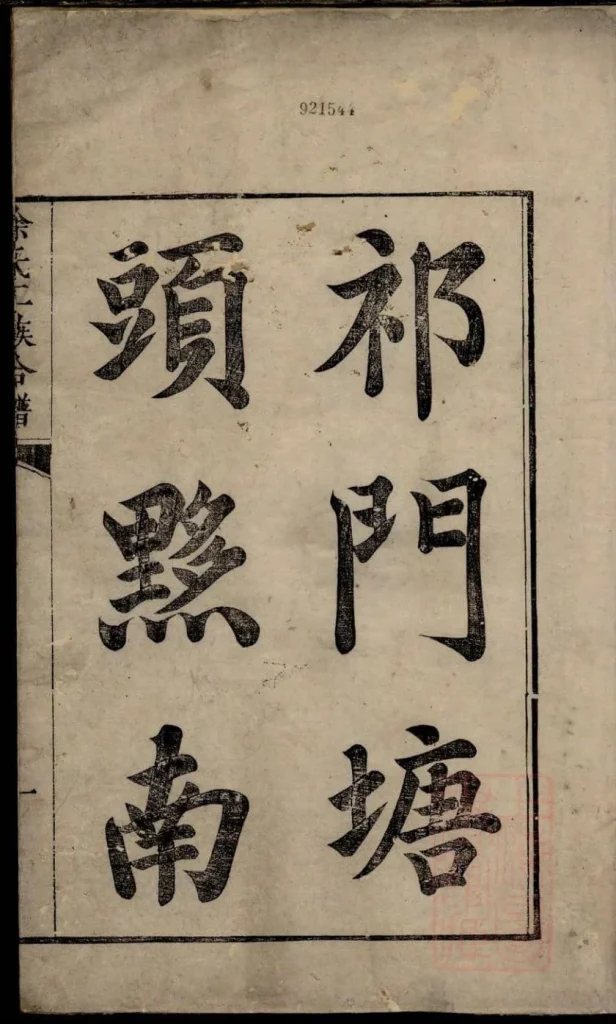 921544
祁門塘
頭黟南
徐氏正族合譜
一